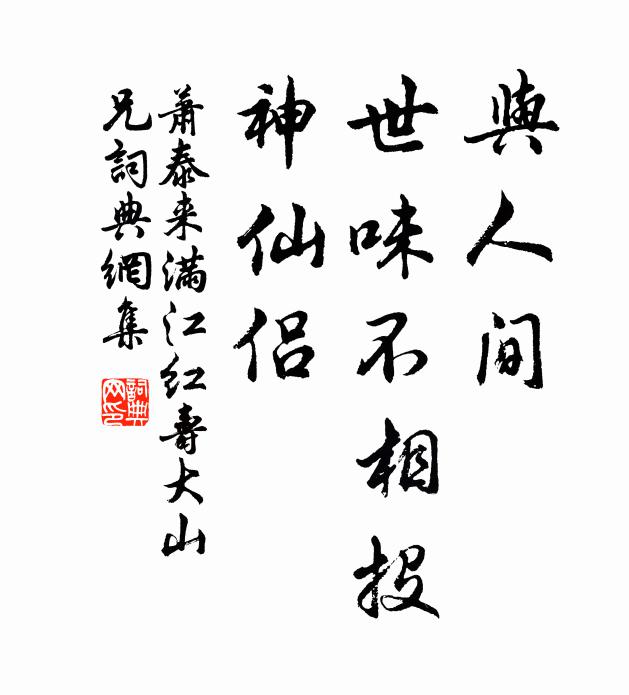 與人間
世味不相投
神仙侶
蕭泰来滿江红壽大山
兄詞典網集
詞典
网印